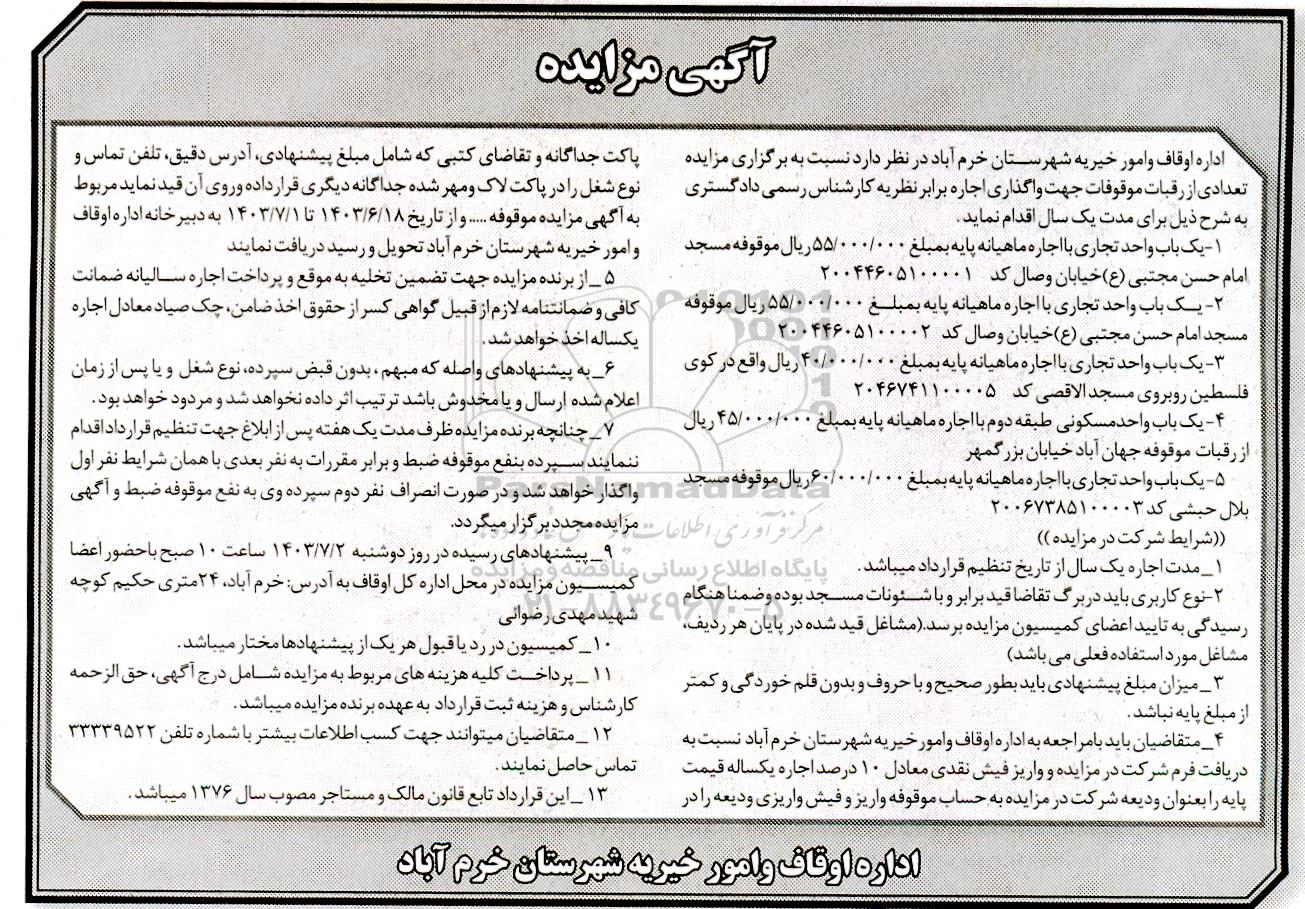 آگهی مزایده
اداره اوقاف وامور خیریه شهرستان خرم آباد در نظر دارد نسبت به برگزاری مزایده
تعدادی از رقبات موقوفات جهت واگذاری اجاره برابر نظریه کارشناس رسمی دادگستری
به شرح ذیل برای مدت یک سال اقدام نماید.
۱-یک باب واحد تجاری با اجاره ماهیانه پایه بمبلغ ۵۵/۰۰۰/۰۰۰ ریال موقوفه مسجد
امام حسن مجتبی (ع)خیابان وصال کد ۲۰۰۴۴۶۰۵۱۰۰۰۰۱
۲- یک باب واحد تجاری با اجاره ماهیانه پایه بمبلغ ۵۵/۰۰۰/۰۰۰ ریال موقوفه
مسجد امام حسن مجتبی (ع)خیابان وصال کد ۲۰۰۴۴۶۰۵۱۰۰۰۰۲
۳-یک باب واحد تجاری با اجاره ماهیانه پایه بمبلغ ۴۰/۰۰۰/۰۰۰ ریال واقع در کوی
فلسطین روبروی مسجد الاقصی کد ۲۰۴۶۷۴۱۱۰۰۰۰۵
۴-یک باب واحدمسکونی طبقه دوم با اجاره ماهیانه پایه بمبلغ ۴۵/۰۰۰/۰۰۰ ریال
از رقبات موقوفه جهان آباد خیابان بزرگمهر
۵-یک باب واحد تجاری با اجاره ماهیانه پایه بمبلغ ۶۰/۰۰۰/۰۰۰ ریال موقوفه مسجد
بلال حبشی کد ۲۰۰۶۷۳۸۵۱۰۰۰۰۳
((شرایط شرکت در مزایده))
۱_مدت اجاره یک سال از تاریخ تنظیم قرارداد میباشد.
۲-نوع کاربری باید در برگ تقاضا قید برابر و با شئونات مسجد بوده وضمنا هنگام
رسیدگی به تایید اعضای کمیسیون مزایده برسد.(مشاغل قید شده در پایان هر ردیف،
مشاغل مورد استفاده فعلی می باشد)
۳_میزان مبلغ پیشنهادی باید بطور صحیح و با حروف و بدون قلم خوردگی و کمتر
از مبلغ پایه نباشد.
۴_متقاضیان باید بامراجعه به اداره اوقاف وامور خیریه شهرستان خرم آباد نسبت به
دریافت فرم شرکت در مزایده و واریز فیش نقدی معادل ۱۰ درصد اجاره یکساله قیمت
پایه را بعنوان ودیعه شرکت در مزایده به حساب موقوفه واریز و فیش واریزی ودیعه را در
پاکت جداگانه و تقاضای کتبی که شامل مبلغ پیشنهادی، آدرس دقیق، تلفن تماس و
نوع شغل را در پاکت لاک ومهر شده جداگانه دیگری قرارداده وروی آن قید نماید مربوط
به آگهی مزایده موقوفه ..... و از تاریخ ۱۴۰۳/۶/۱۸ تا ۱۴۰۳/۷/۱ به دبیرخانه اداره اوقاف
و امور خیریه شهرستان خرم آباد تحویل و رسید دریافت نمایند
۵ _از برنده مزایده جهت تضمین تخلیه به موقع و پرداخت اجاره سالیانه ضمانت
کافی و ضمانتنامه لازم از قبیل گواهی کسر از حقوق اخذ ضامن، چک صیاد معادل اجاره
یکساله اخذ خواهد شد.
۶_به پیشنهادهای واصله که مبهم ، بدون قبض سپرده، نوع شغل و یا پس از زمان
اعلام شده ارسال و یا مخدوش باشد ترتیب اثر داده نخواهد شد و مردود خواهد بود .
۷_چنانچه برنده مزایده ظرف مدت یک هفته پس از ابلاغ جهت تنظیم قرارداد اقدام
ننمایند سپرده بنفع موقوفه ضبط و برابر مقررات به نفر بعدی با همان شرایط نفر اول
واگذار خواهد شد و در صورت انصراف نفر دوم سپرده وی به نفع موقوفه ضبط و آگهی
مزایده مجدد برگزار میگردد.
۹_پیشنهادهای رسیده در روز دوشنبه ۱۴۰۳/۷/۲ ساعت ۱۰ صبح باحضور اعضا
کمیسیون مزایده در محل اداره کل اوقاف به آدرس: خرم آباد، ۲۴متری حکیم کوچه
شهید مهدی رضوانی
۱۰_کمیسیون در رد یا قبول هر یک از پیشنهادها مختار میباشد.
۱۱ _پرداخت کلیه هزینه های مربوط به مزایده شامل درج آگهی، حق الزحمه
کارشناس و هزینه ثبت قرارداد به عهده برنده مزایده میباشد.
۱۲ _متقاضیان میتوانند جهت کسب اطلاعات بیشتر با شماره تلفن ۳۳۳۳۹۵۲۲
تماس حاصل نمایند.
۱۳ _این قرارداد تابع قانون مالک و مستاجر مصوب سال ۱۳۷۶ میباشد.
اداره اوقاف وامور خیریه شهرستان خرم آباد
ParsNamadData
پایگاه اطلاع رسانی مناقصه و مزایده
۰۲۱-۸۸۳۴۹۶۷۰-۵